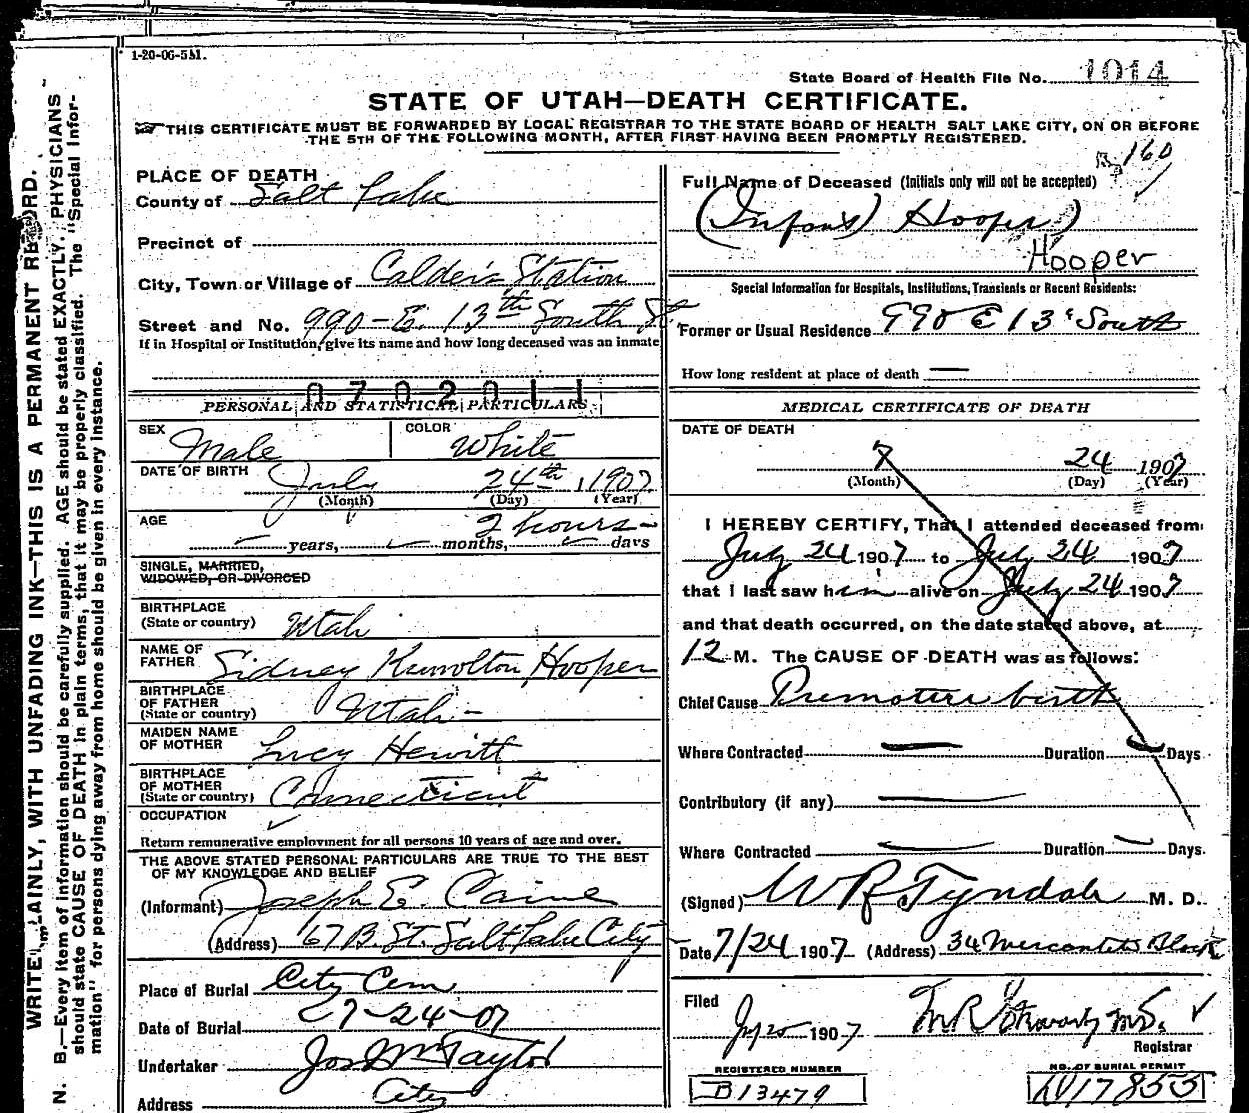 1-20-06-5M.
State Board of Health File No. 1014
STATE OF UTAH—DEATH CERTIFICATE.
THIS CERTIFICATE MUST BE FORWARDED BY LOCAL REGISTRAR TO THE STATE BOARD OF HEALTH SALT LAKE CITY, ON OR BEFORE
THE 5TH OF THE FOLLOWING MONTH, AFTER FIRST HAVING BEEN PROMPTLY REGISTERED.
160
WRITE PLAINLY, WITH UNFADING INK—THIS IS A PERMANENT RECORD.
N. B.—Every item of information should be carefully supplied. AGE should be stated EXACTLY. PHYSICIANS
should state CAUSE OF DEATH in plain terms, that it may be properly classified. The "Special Infor-
mation" for persons dying away from home should be given in every instance.
PLACE OF DEATH
County of Salt Lake
Precinct of
City, Town or Village of Calder's Station
Street and No. 990-E. 13th South St
If in Hospital or Institution, give its name and how long deceased was an inmate
0702011
PERSONAL AND STATISTICAL PARTICULARS
SEX Male COLOR White
DATE OF BIRTH July 24th, 1907
(Month) (Day) (Year)
AGE 2 hours
years, months, days
SINGLE, MARRIED,
WIDOWED, OR DIVORCED
BIRTHPLACE
(State or country) Utah
NAME OF
FATHER Sidney Hooper
BIRTHPLACE
OF FATHER
(State or country) Utah
MAIDEN NAME
OF MOTHER Lucy Hewitt
BIRTHPLACE
OF MOTHER
(State or country) Connecticut
OCCUPATION
Return remunerative employment for all persons 10 years of age and over.
THE ABOVE STATED PERSONAL PARTICULARS ARE TRUE TO THE BEST
OF MY KNOWLEDGE AND BELIEF
(Informant) Joseph E. Caine
(Address) 67 B. St. Salt Lake City
Place of Burial City Cem
Date of Burial 7-24-07
Undertaker Jos Wm Taylor
Address City
Full Name of Deceased (Initials only will not be accepted)
(Infant) Hooper)
Hooper
Special Information for Hospitals, Institutions, Transients or Recent Residents:
Former or Usual Residence 990 E 13 South
How long resident at place of death —
MEDICAL CERTIFICATE OF DEATH
DATE OF DEATH
7 24 1907
(Month) (Day) (Year)
I HEREBY CERTIFY, That I attended deceased from
July 24 1907 to July 24 1907
that I last saw him alive on July 24 1907
and that death occurred, on the date stated above, at
12 M. The CAUSE OF DEATH was as follows:
Chief Cause Premature birth
Where Contracted — Duration — Days
Contributory (if any) —
Where Contracted — Duration — Days.
(Signed) W R Tyndale M. D.
Date 7/24 1907 (Address) 34 Mercantile Block
Filed 1907
Registrar
REGISTERED NUMBER
B13479
NO. OF BURIAL PERMIT